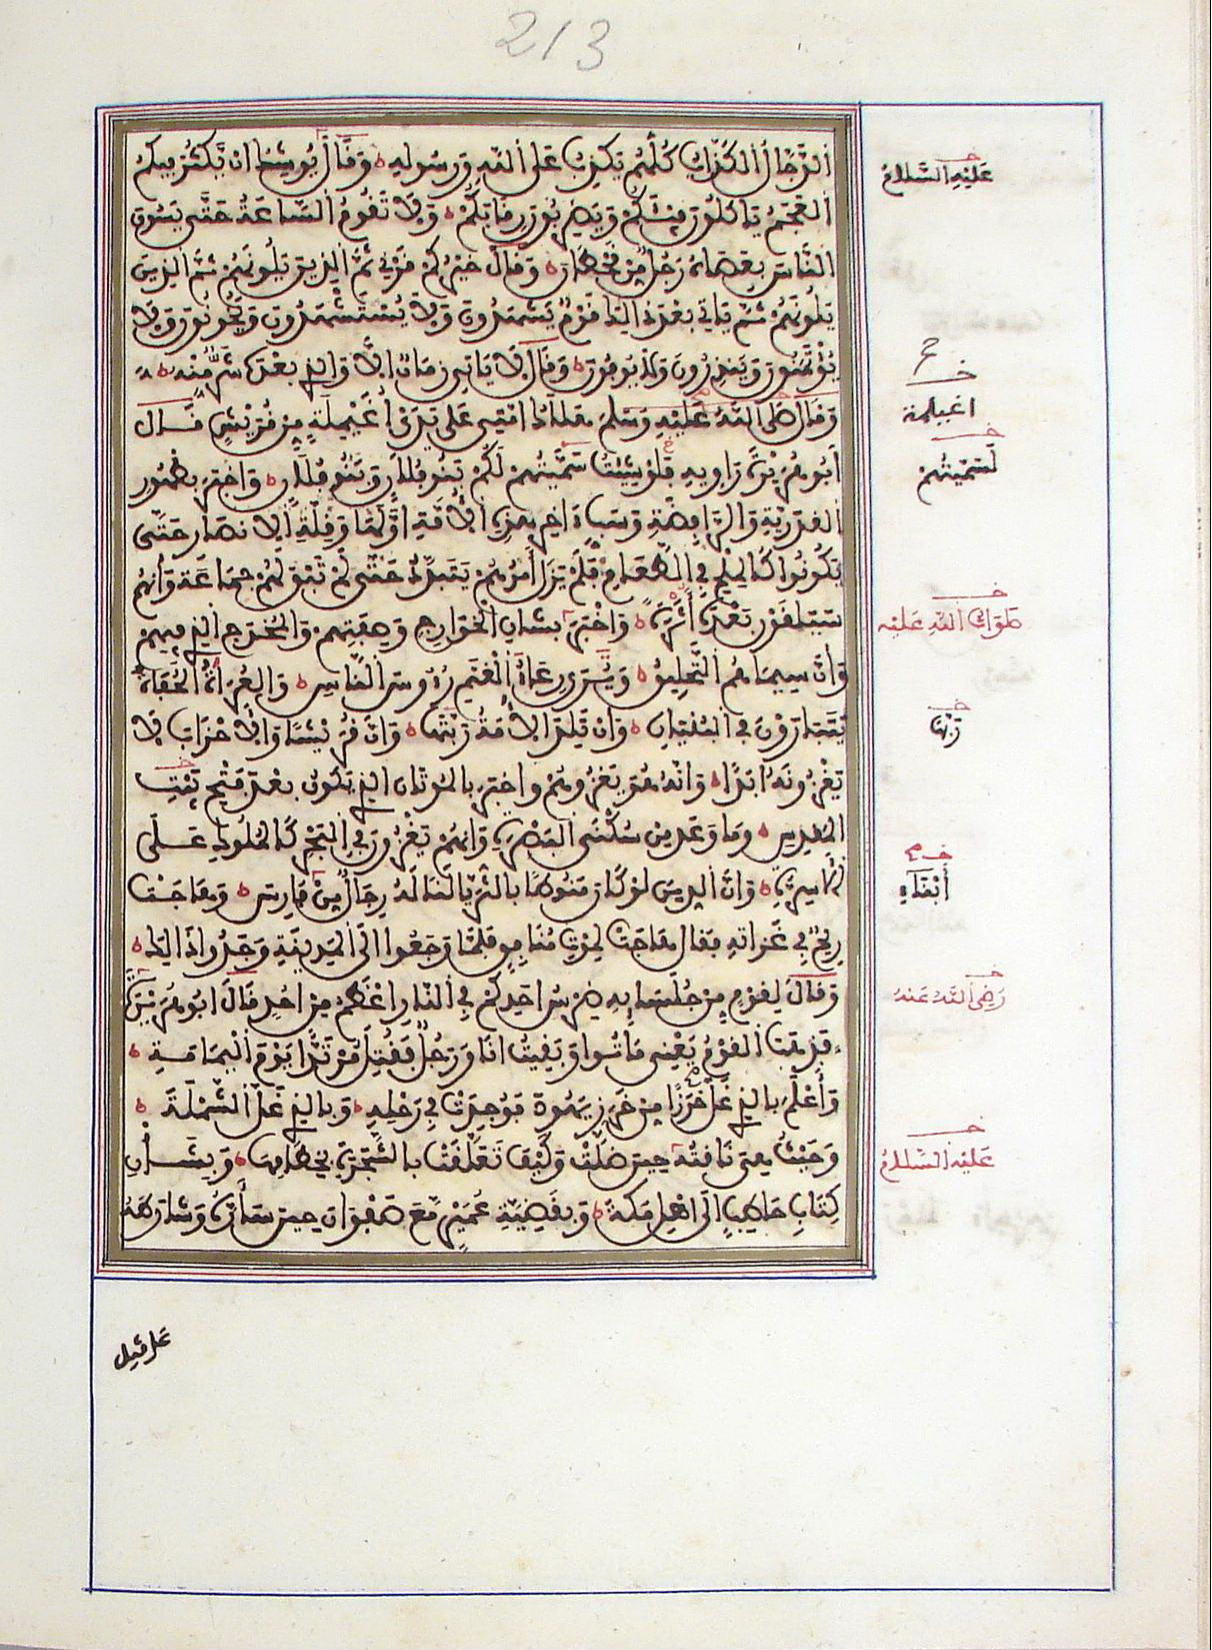 213
الدَّجَّالُ الكَذَّابُ كُلُّهُمْ يَكْذِبُ عَلَى اللهِ وَرَسُولِهِ وَقَالَ يُوشِكُ انْ يَّكْثُرَ فِيكُمُ
العَجَمُ يَاكُلُونَ فَيْئَكُمْ وَيَضْرِبُونَ رِقَابَكُمْ وَلَا تَقُومُ السَّاعَةُ حَتَّى يَسُوقَ
النَّاسَ بِعَصَاهُ رَجُلٌ مِّن قَحْطَانَ وَقَالَ خَيْرُكُمْ قَرْنِي ثُمَّ الذِينَ يَلُونَهُمْ ثُمَّ الذِينَ
يَلُونَهُمْ ثُمَّ يَاتِي بَعْدَ ذَلِكَ قَوْمٌ يَشْهَدُونَ وَلَا يُسْتَشْهَدُونَ وَيَخُونُونَ وَلَا
يُؤْتَمَنُونَ وَيَنذِرُونَ وَلَا يُوفُونَ وَقَالَ لَا يَاتِي زَمَانٌ الَّا وَالذِي بَعْدَهُ شَرٌّ مِّنْهُ
وَقَالَ صَلَّى اللهُ عَلَيْهِ وَسَلَّمَ هَلَاكُ امَّتِي عَلَى يَدَيْ أُغَيْلِمَةٍ مِن قُرَيْشٍ قَالَ
أَبُو هُرَيْرَةَ رَاوِيهِ فَلَوْ شِئْتُ سَمَّيْتُهُمْ لَكُمْ بَنُو فُلَانٍ وَبَنُو فُلَانٍ وَاخْبَرَ بِظُهُورِ
القَدَرِيَّةِ وَالرَّافِضَةِ وَسَبِّ اخِرِ هَذِهِ الأُمَّةِ اوَّلَهَا وَقِلَّةِ الأنصَارِ حَتَّى
يَكُونُوا كَالمِلْحِ فِي الطَّعَامِ فَلَمْ يَزَلْ أَمْرُهُمْ يَتَبَدَّدُ حَتَّى لَمْ تَبْقَ لَهُمْ جَمَاعَة وَأَنَّهُمْ
سَيَلْقَوْنَ بَعْدَهُ أَثَرَةً وَاخْبَرَ بِشَأنِ الخَوَارِجِ وَصِفَتِهِمْ وَالمُخْدَجِ الذِي فِيهِمْ
وَانَّ سِيمَاهُمُ التَّحْلِيقُ وَيُرَى رِعَاءُ الْغَنَمِ رُءُوسَ النَّاسِ وَالعُرَاةُ الحُفَاةُ
يَتَبَارَوْنَ فِي البُنْيَانِ وَان تَلِدَ الأَمَةُ رَبَّتَهَا وَانَّ قُرَيْشًا وَالأحْزَابَ لَا
يَغْزُونَهُ ابَدًا وَانَّهُ هُوَ يَغْزُوهُمْ وَاخبَرَ بِالمُوتَانِ الذِي يَكُونُ بَعْدَ فَتْحِ بَيْتِ
المَقْدِسِ وَمَا وَعَدَ مِن سُكْنَى البَصْرَةِ وَانَّهُمْ يَغْزُونَ فِي البَحْرِ كَالمُلُوكِ عَلَى
الأَسِرَّةِ وَانَّ الدِّينَ لَوْ كَانَ مَنُوطًا بِالثُّرَيَّا لَنَالَهُ رِجَالٌ مِّنْ فَارِسَ وَهَاجَتْ
رِيحٌ فِي غَزَاتِهِ فَقَالَ هَاجَتْ لِمَوْتِ مُنَافِقٍ فَلَمَّا رَجَعُوا الَى المَدِينَةِ وَجَدُوا ذَالِكَ
وَقَالَ لِقَوْمٍ مِن جُلَسَائِهِ ضِرْسُ احَدِكُمْ فِي النَّارِ اعْظَمُ مِن احُدٍ قَالَ ابُو هُرَيْرَةَ
فَذَهَبَ القَوْمُ يَعْنِي مَاتُوا وَبَقِيتُ انَا وَرَجُلٌ فَقُتِلَ مُرْتَدًّا يَوْمَ الْيَمَامَةِ
وَأَعْلَمَ بِالذِي غَلَّ خَرَزًا مِن خَرَزِ يَهُودَ فَوُجِدَتْ فِي رَحْلِهِ وَبِالذِي غَلَّ الشَّمْلَةَ
وَحَيْثُ هِيَ نَاقَتُهُ حِينَ ضَلَّتْ وَكَيْفَ تَعَلَّقَتْ بِالشَّجَرَةِ بِخِطَامِهَا وَبِشَأْنِ
كِتَابِ حَاطِبٍ الَى اهْلِ مَكَّةَ وَبِقَضِيَّةِ عُمَيْرٍ مَّعَ صَفْوَانَ حِينَ سَارَّهُ وَشَارَطَهُ
عَلَيْهِ السَّلَامُ
اغيلمة
لَسَمَّيْتُهُمْ
صَلَوَاتُ اللهِ عَلَيْهِ
رَبَّهَا
أَبْنَاءِ
رَضِيَ اللهُ عَنْهُ
عَلَيْهِ السَّلَامُ
عَلَى قَتْلِ